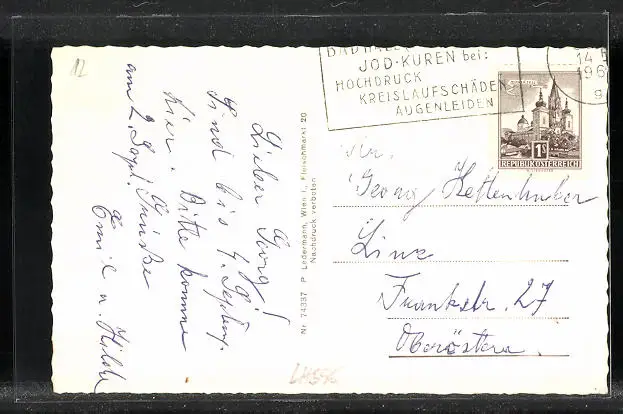 12
Lieber Georg!
Sind bis 4. Septemb.
hier. Bitte komme
am 2. Sept. Grüße
Emil u. Hilde
Nr. 74337 P. Ledermann, Wien I., Fleischmarkt 20
Nachdruck verboten
BAD HALL
JOD-KUREN bei:
HOCHDRUCK
KREISLAUFSCHÄDEN
AUGENLEIDEN
14
196
9
1S
REPUBLIK ÖSTERREICH
Georg Hettenhuber
Linz
Frankstr. 27
Oberösterr.